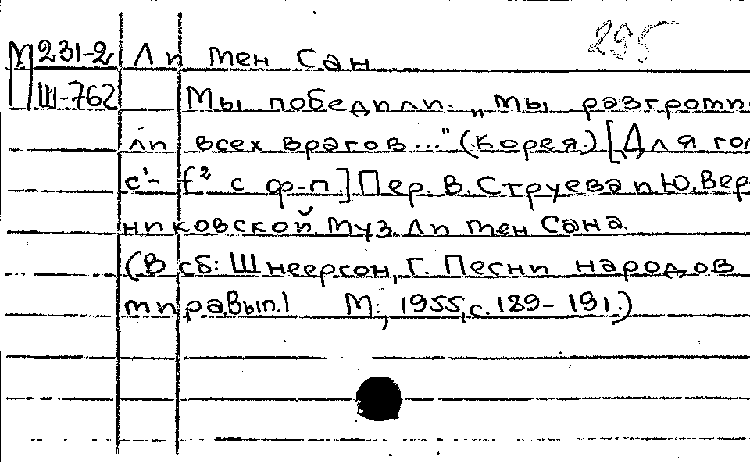 295
М 231-2 Ли Мен Сан
Ш-762 Мы победили. „Мы разгроми-
ли всех врагов..." (Корея.) [Для гол
с¹- f² с ф-п] Пер. В. Струева и Ю. Вер
никовской. Муз. Ли Мен Сана.
(В сб: Шнеерсон, Г. Песни народов
мира. Вып. 1 М., 1955, с. 189-191.)